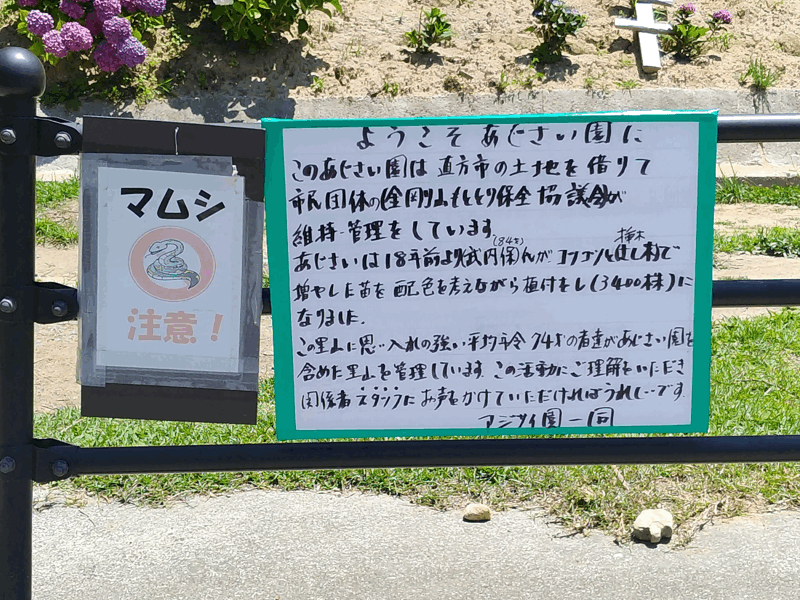 マムシ
注意！
ようこそ あじさい園に
このあじさい園は 直方市の土地を借りて
市民団体の(金剛山もととり保全協議会)が
維持・管理をしています。
あじさいは18年前より武内保(84才)さんが コツコツと挿木で
増やした苗を 配色を考えながら植付をし(3400株)に
なりました。
この里山に思い入れの強い平均年令74才の者達があじさい園を
含めた里山を管理しています。この活動にご理解をいただき
関係者スタッフにお声をかけていただければうれしいです
アジサイ園一同